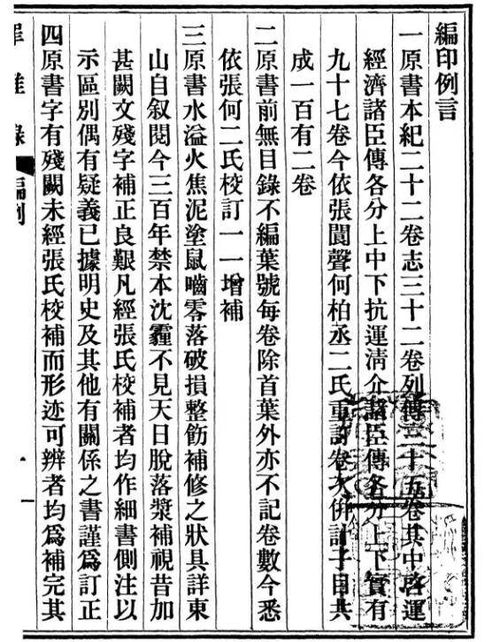 編印例言
一原書本紀二十二卷志三十二卷列傳三十五卷其中啓運
經濟諸臣傳各分上中下抗運淸介諸臣傳各分上下實有
九十七卷今依張閬聲何柏丞二氏重訂卷次併計子目共
成一百有二卷
二原書前無目錄不編葉號每卷除首葉外亦不記卷數今悉
依張何二氏校訂一一增補
三原書水溢火焦泥塗鼠嚙零落破損整飭補修之狀具詳東
山自叙閱今三百年禁本沈霾不見天日脫落漿補視昔加
甚闕文殘字補正良艱凡經張氏校補者均作細書側注以
示區別偶有疑義已據明史及其他有關係之書謹爲訂正
四原書字有殘闕未經張氏校補而形迹可辨者均爲補完其
罪惟錄
編例
一